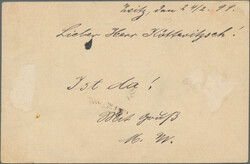 Zeitz, den 24/2. 99.
Lieber Herr Kötteritzsch!
Ist da!
Mit Gruß
M. W.